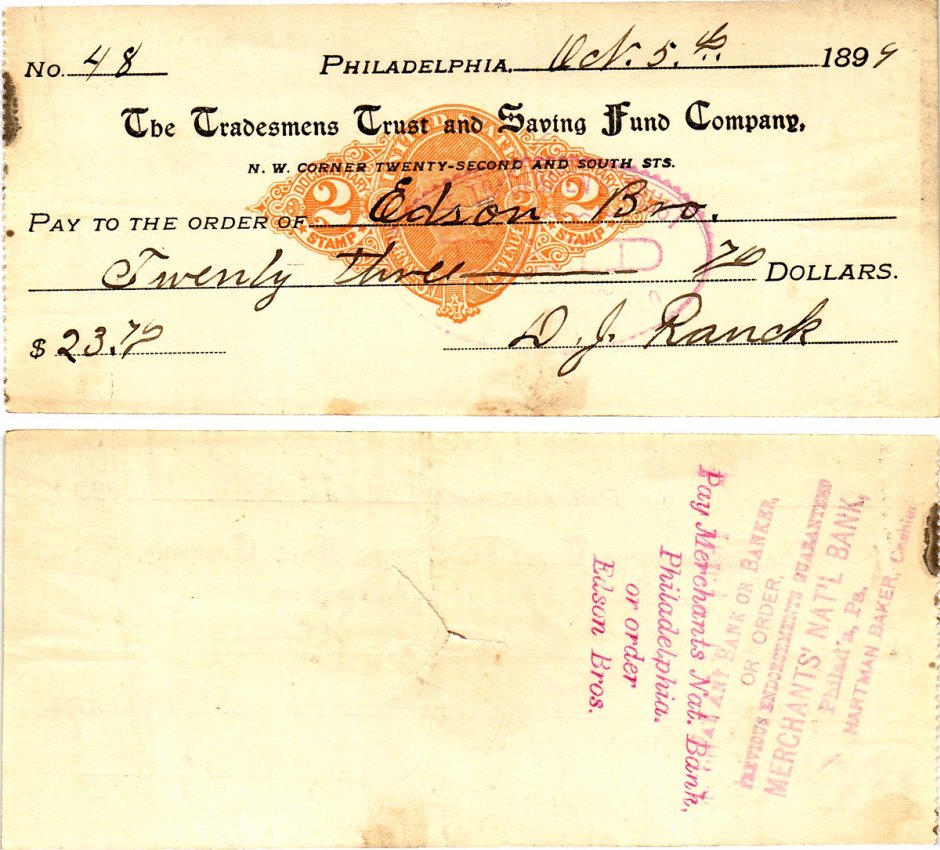 No. 48 Philadelphia, Oct. 5th. 1899
The Tradesmens Trust and Saving Fund Company,
N. W. CORNER TWENTY-SECOND AND SOUTH STS.
2 2
STAMP STAMP
PAY TO THE ORDER OF Edson Bro.
Twenty three 70 DOLLARS.
$ 23.70 D. J. Ranck
Pay Merchants Nat. Bank,
Philadelphia.
or order
Edson Bros.
ANY BANK OR BANKER,
OR ORDER,
PREVIOUS ENDORSEMENTS GUARANTEED
MERCHANTS' NAT'L BANK,
Philad'a, Pa.
HARTMAN BAKER, Cashier